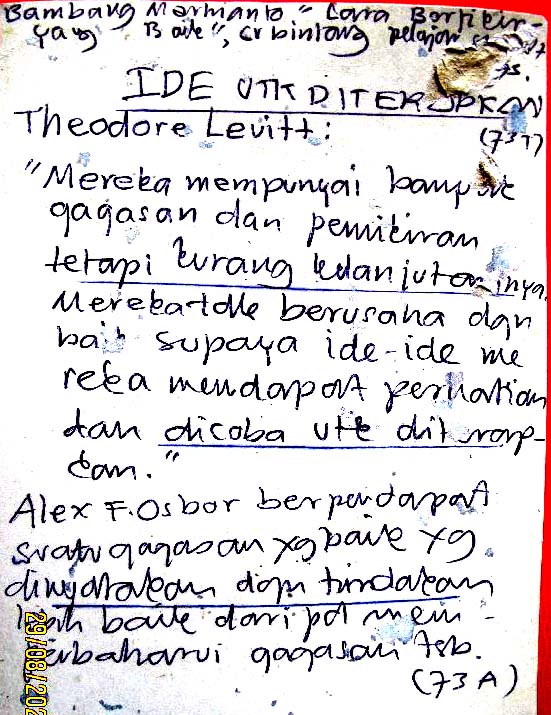 Bambang Marhanto "Cara Berfikir-
yang Baik", cv bintang pelajar
75.
IDE UTK DITERAPKAN
Theodore Levitt: (73T)
"Mereka mempunyai banyak
gagasan dan pemikiran
tetapi kurang kelanjutannya.
Mereka tdk berusaha dgn
baik supaya ide-ide me
reka mendapat perhatian
dan dicoba utk diterap-
kan."
Alex F. Osbor berpendapat
suatu gagasan yg baik yg
dinyatakan dgn tindakan
lebih baik daripd mem-
rbaharui gagasan tsb.
(73A)
29/08/202